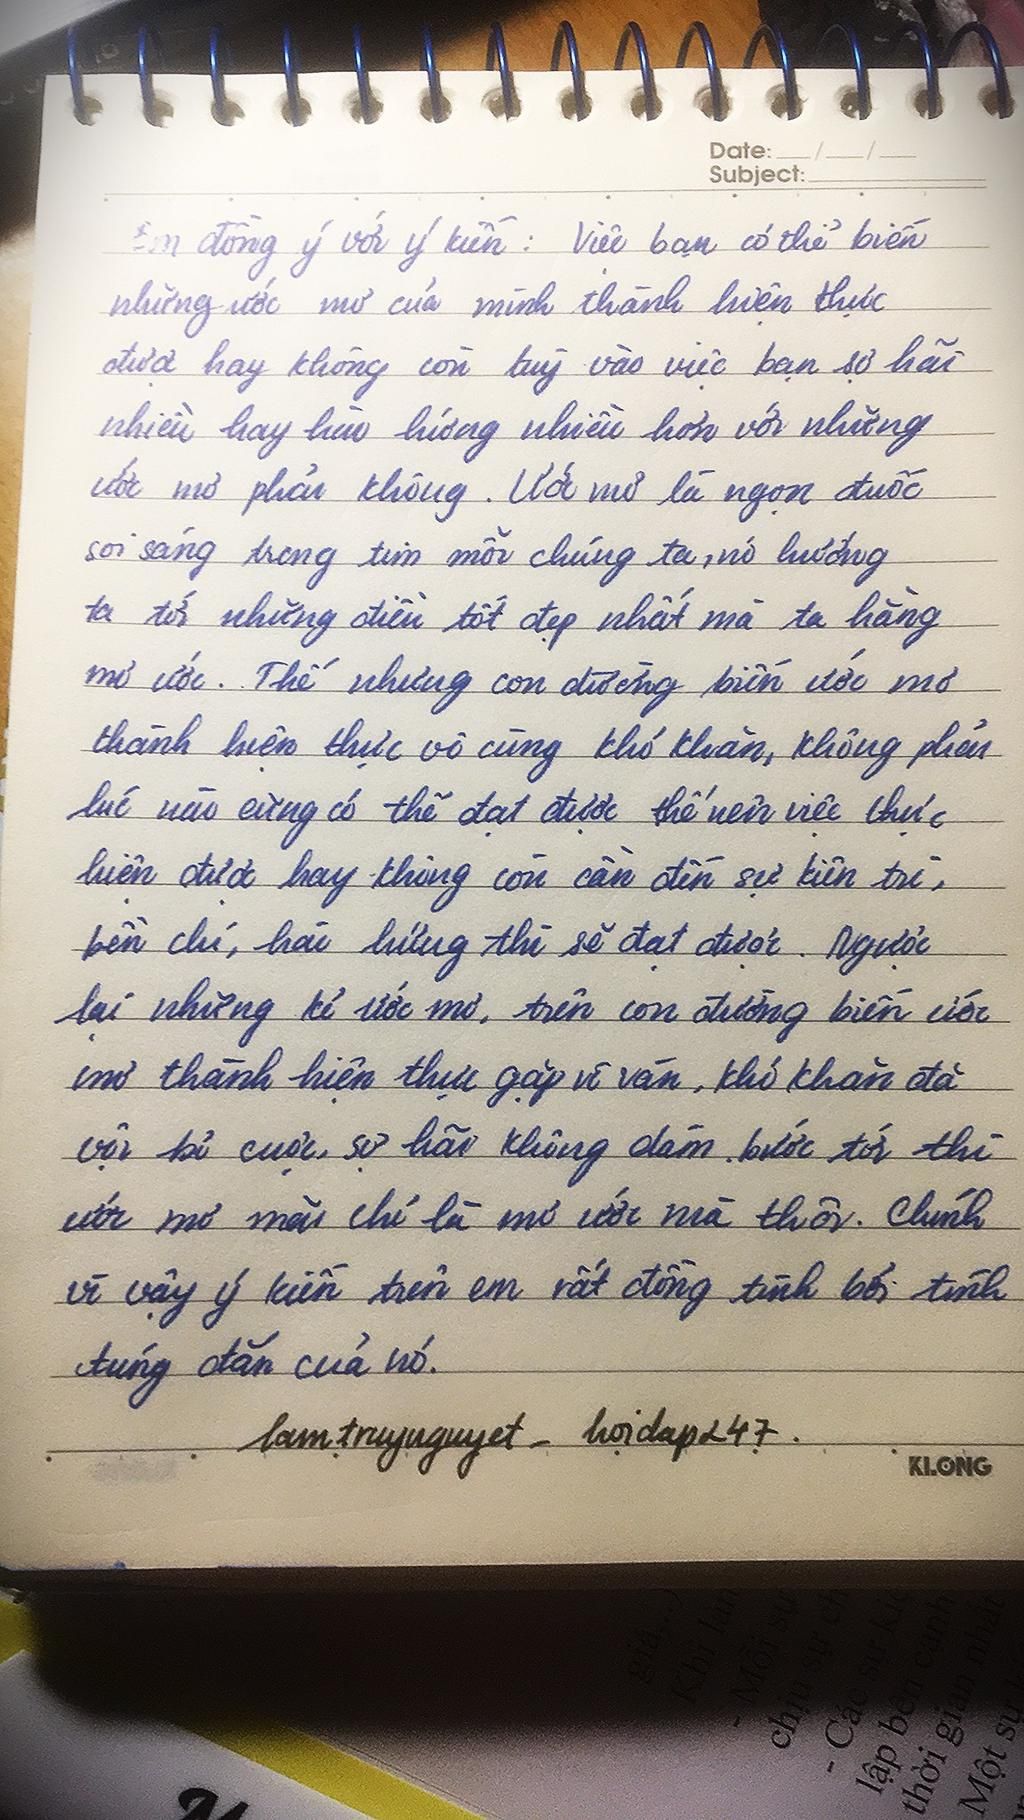 Date: __/__/__
Subject:
Em đồng ý với ý kiến : Việc bạn có thể biến
những ước mơ của mình thành hiện thực
được hay không còn tuỳ vào việc bạn sợ hãi
nhiều hay hào hứng nhiều hơn với những
ước mơ phải không. Ước mơ là ngọn đuốc
soi sáng trong tim mỗi chúng ta, nó hướng
ta tới những điều tốt đẹp nhất mà ta hằng
mơ ước. Thế nhưng con đường biến ước mơ
thành hiện thực vô cùng khó khăn, không phải
lúc nào cũng có thể đạt được thế nên việc thực
hiện được hay không còn cần đến sự kiên trì,
bền chí, hào hứng thì sẽ đạt được. Ngược
lại những kẻ ước mơ, trên con đường biến ước
mơ thành hiện thực gặp vì ván, khó khăn đã
vội bỏ cuộc, sợ hãi không dám bước tới thì
ước mơ mãi chỉ là mơ ước mà thôi. Chính
vì vậy ý kiến trên em rất đồng tình bởi tính
đúng đắn của nó.
lamtruynguyet - hoidap247.
KLONG
giá...)
Khi
- Mỗi sự
chịu sự ch
- Các sự kiệ
lập bên cạnh
thời gian nhất
Một sự